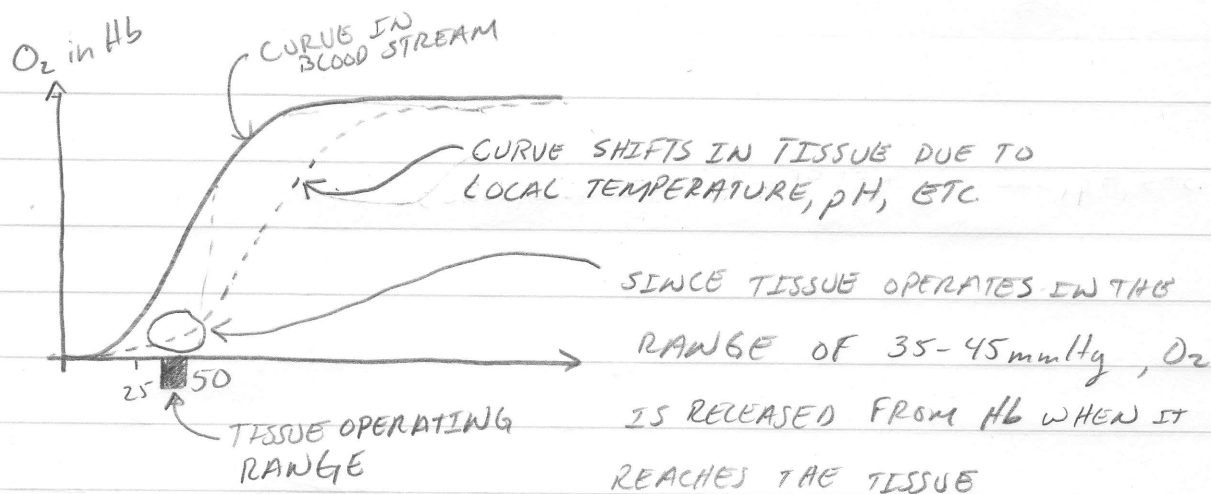 O₂ in Hb
CURVE IN
BLOOD STREAM
CURVE SHIFTS IN TISSUE DUE TO
LOCAL TEMPERATURE, pH, ETC
SINCE TISSUE OPERATES IN THE
RANGE OF 35-45mmHg, O₂
IS RELEASED FROM Hb WHEN IT
REACHES THE TISSUE
25 50
TISSUE OPERATING
RANGE